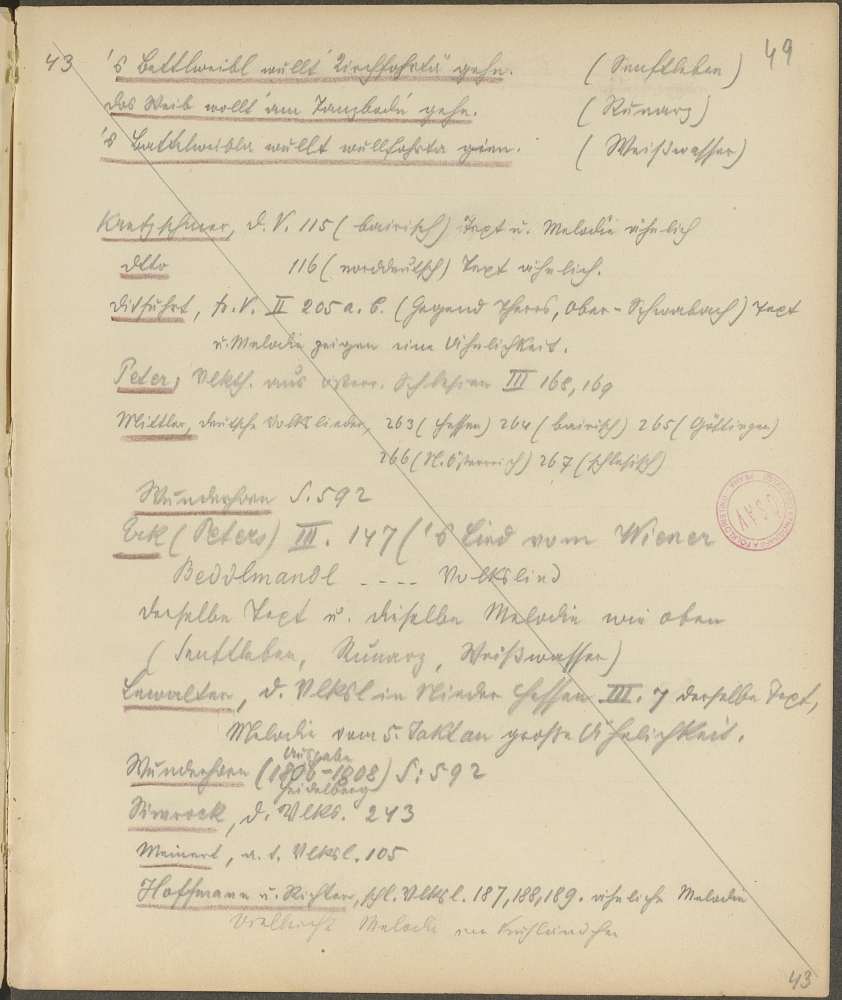 49
43 's Bettlweibl wullt' Kirchfahrta gehn. (Senftleben)
Das Weib wollt' am Tanzbod'n gehn. (Runarz)
's Battlweibla wullt wullfahrta gien. (Weißwasser)
Kretzschmer, d. V. 115 (bairisch) Text u. Melodie ähnlich
dtto 116 (norddeutsch) Text ähnlich.
Ditfurth, fr. V. II 205 a. b. (Gegend Theres, Ober-Schwabach) Text
u. Melodie zeigen eine Ähnlichkeit.
Peter, Volkth. aus österr. Schlesien III 168, 169
Mittler, deutsche Volkslieder, 263 (Hessen) 264 (bairisch) 265 (Göttingen)
266 (N. Österreich) 267 (schlesisch)
Wunderhorn S. 592
Erk (Peters) III. 147 ('s Lied vom Wiener
Beddlmandl ---- Volkslied
derselbe Text u. dieselbe Melodie wie oben
(Senftleben, Runarz, Weißwasser)
Lewalter, d. Vlksl in Nieder Hessen III. 7 derselbe Text,
Melodie vom 5. Takt an große Ähnlichkeit.
Ausgabe
Wunderhorn (1806-1808) S: 592
Heidelberg
Simrock, d. Vlks. 243
Meinert, a. d. Vlksl. 105
Hoffmann u. Richter, schl. Vlksl. 187, 188, 189. ähnliche Melodie
Vielleicht Melodie im Kuhländchen
43